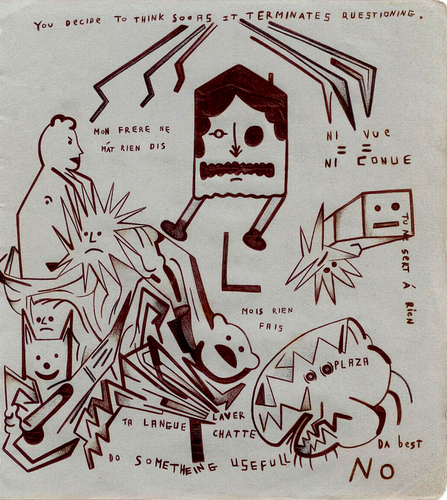 YOU DECIDE TO THINK SOOAS IT TERMINATES RUESTIONING.
MON FRERE NE
M'AT RIEN DIS
NI VUE
= =
NI CONUE
TU NE SERT À RIEN
L
MOIS RIEN
FAIS
PLAZA
TA LANGUE LAVER
CHATTE
DA best
DO SOMETHEING USEFULL
NO